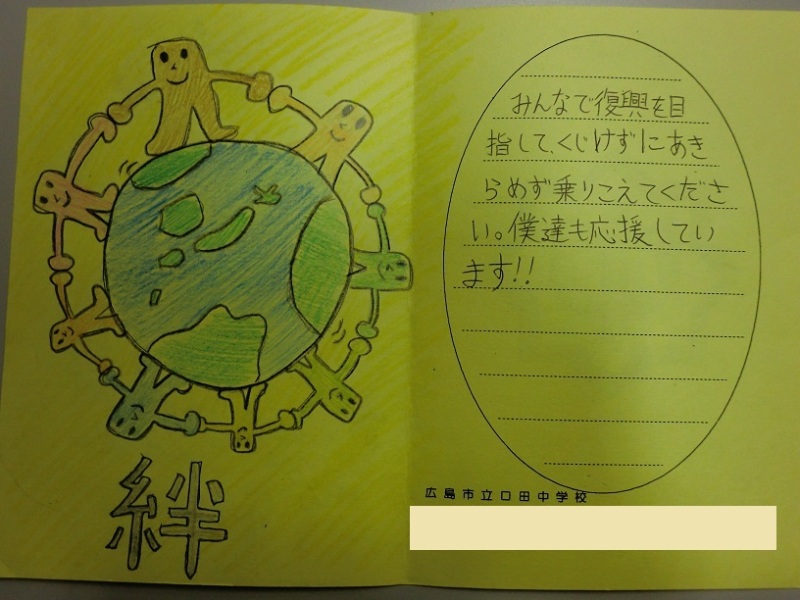 絆
みんなで復興を目
指して、くじけずにあき
らめず乗りこえてくださ
い。僕達も応援してい
ます!!
広島市立口田中学校